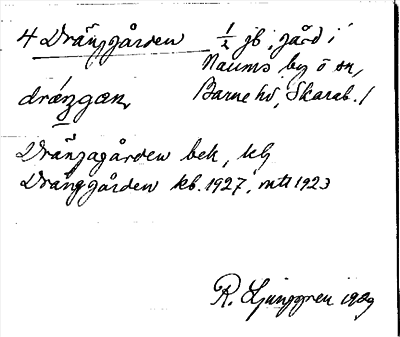 4 Drängården 1/2 jb, gård i
Naums by o sn,
drä́ŋgan, Barne hd, Skarab. l
Drängagården bek, klj
Dränggården kb. 1927, mtl 1923
R. Ljunggren 1929